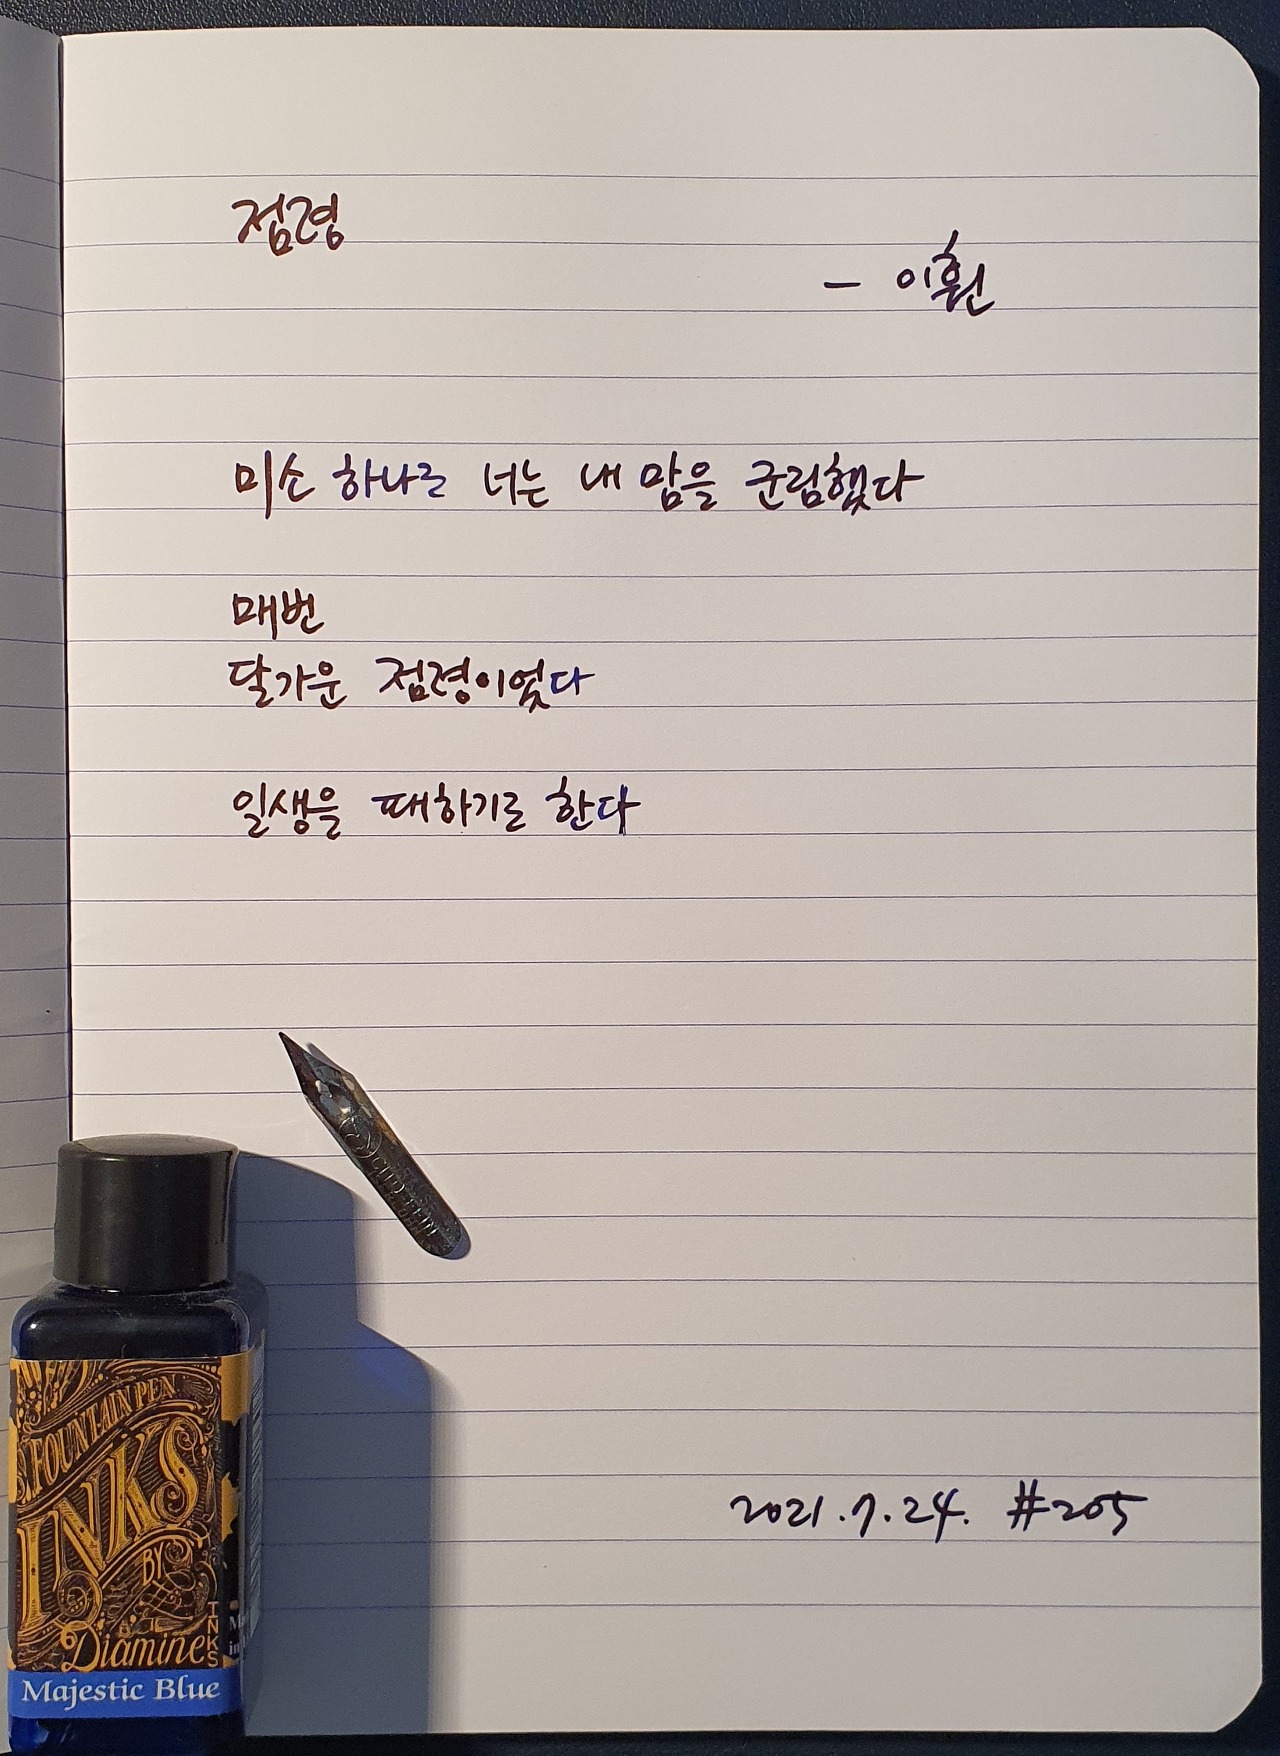 점령
- 이훤
미소 하나로 너는 내 맘을 군림했다
매번
달가운 점령이었다
일생을 패하기로 한다
2021.7.24. #205
FOUNTAIN PEN
INKS
BY
Diamine
INKS
Majestic Blue